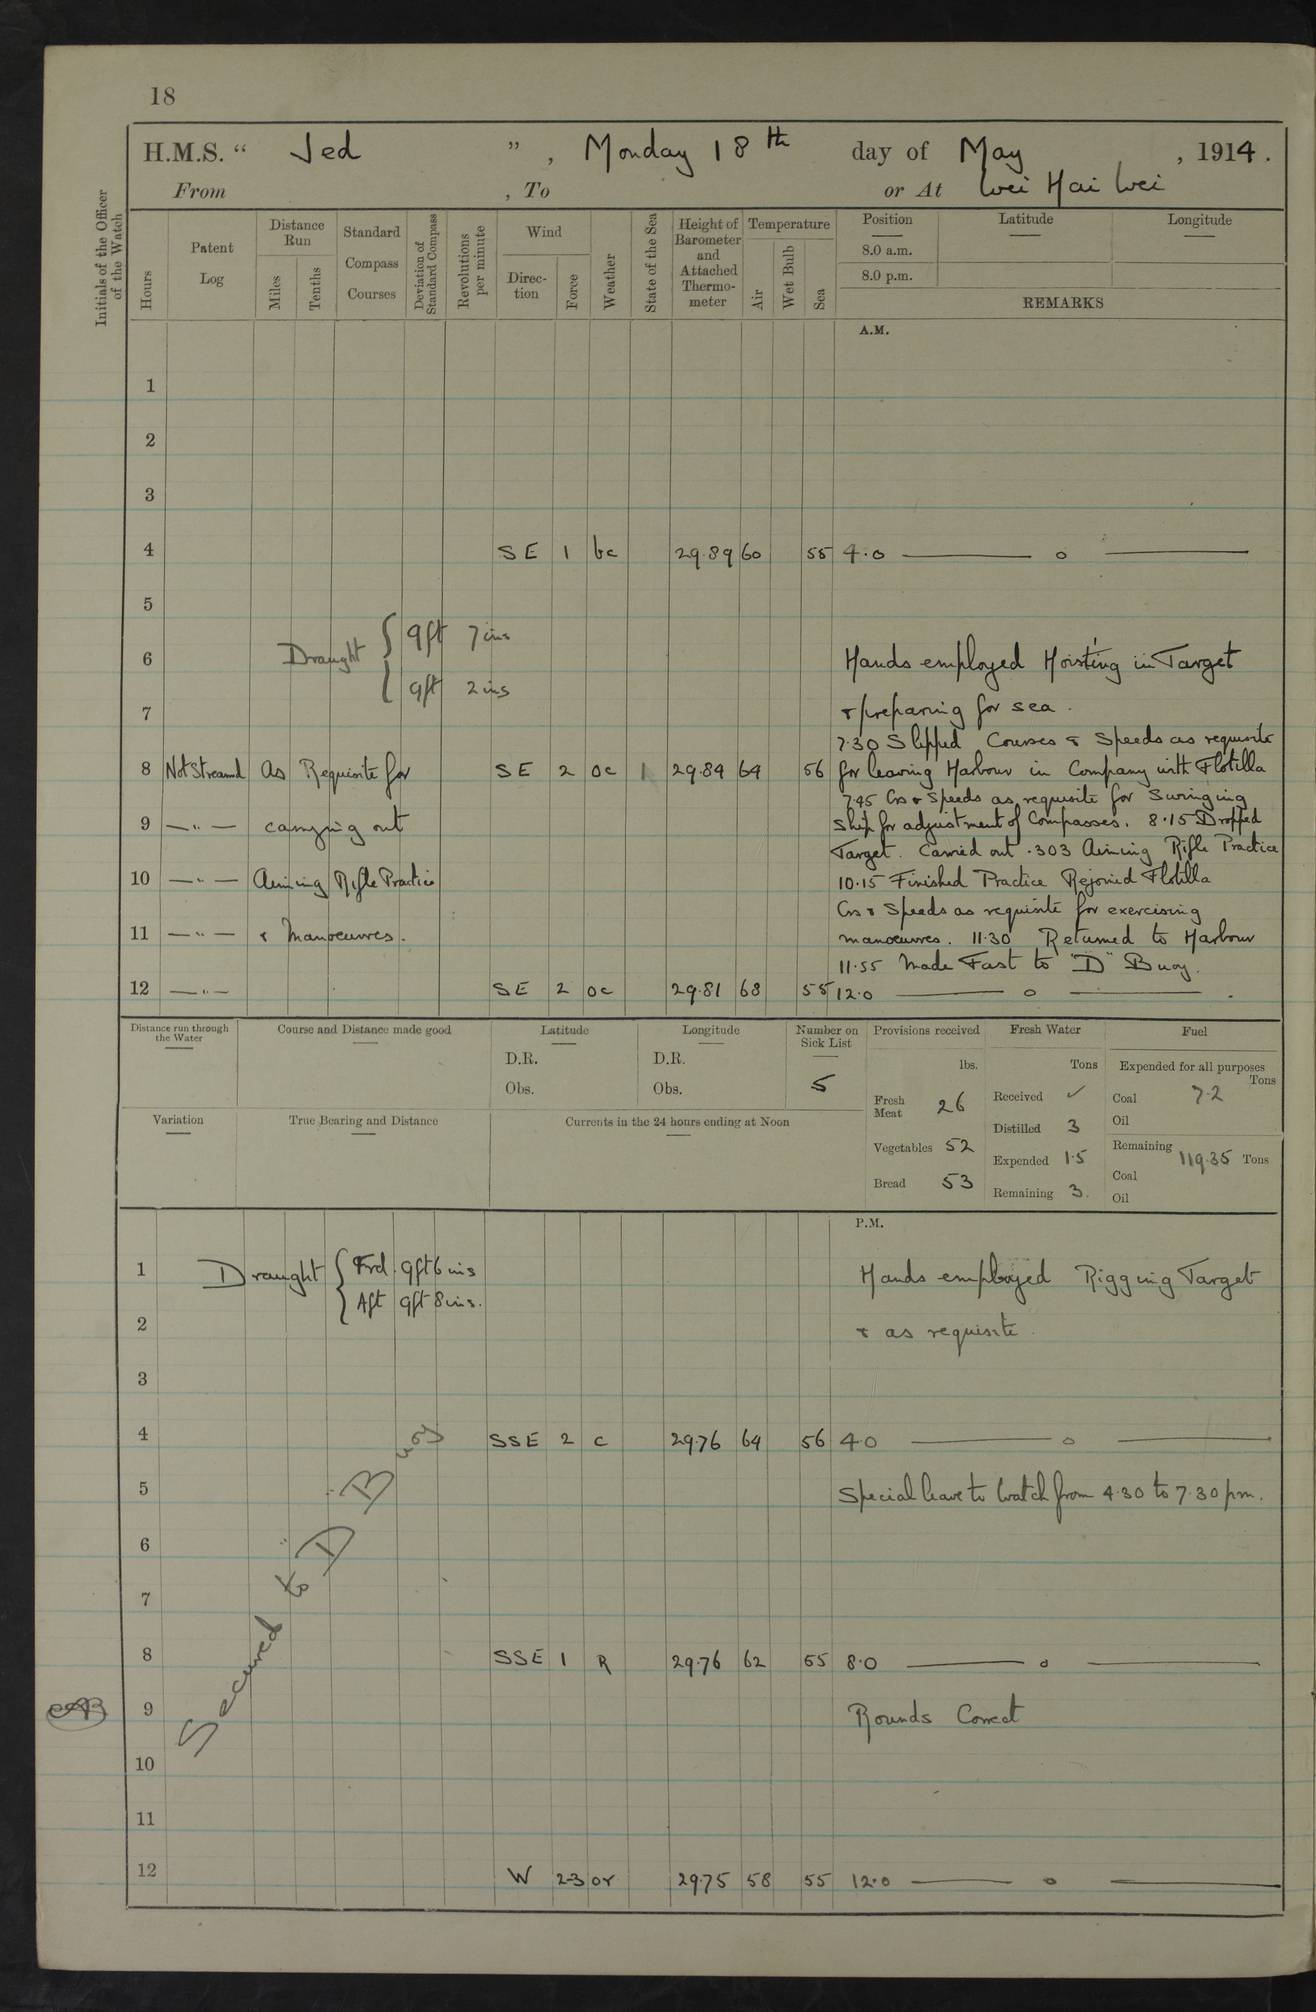 18
H.M.S. “ Jed ” , Monday 18th day of May , 1914.
From , To or At Wei Hai Wei
Initials of the Officer of the Watch
Hours
Patent Log
Distance Run
Miles
Tenths
Standard Compass Courses
Deviation of Standard Compass
Revolutions per minute
Wind
Direction
Force
Weather
State of the Sea
Height of Barometer and Attached Thermometer
Temperature
Air
Wet Bulb
Sea
Position Latitude Longitude
8.0 a.m.
8.0 p.m.
REMARKS
A.M.
1
2
3
4 SE 1 bc 29.89 60 55 4.0 — o —
5
Draught { 9ft 7 ins
6 Hands employed Hoisting in Target
9ft 2 ins
7 & preparing for sea.
7.30 Slipped Courses & Speeds as requisite
8 Not Streamd As Requisite for SE 2 oc 1 29.84 64 56 for leaving Harbour in Company with Flotilla
7.45 Cos & Speeds as requisite for Swinging
9 —"— carrying out Ship for adjustment of Compasses. 8.15 Dropped
Target. Carried out .303 Aiming Rifle Practice
10 —"— Aiming Rifle Practice 10.15 Finished Practice Rejoined Flotilla
Cos & Speeds as requisite for exercising
11 —"— & Manoeuvres. manoeuvres. 11.30 Returned to Harbour
11.55 Made Fast to "D" Buoy.
12 —"— SE 2 oc 29.81 68 55 12.0 — o —
Distance run through the Water
Course and Distance made good
Latitude
D.R.
Obs.
Longitude
D.R.
Obs.
Number on Sick List
5
Variation
True Bearing and Distance
Currents in the 24 hours ending at Noon
Provisions received
lbs.
Fresh Meat 26
Vegetables 52
Bread 53
Fresh Water
Tons
Received ✓
Distilled 3
Expended 1.5
Remaining 3.
Fuel
Expended for all purposes
Tons
Coal 7.2
Oil
Remaining 119.35 Tons
Coal
Oil
P.M.
1 Draught { Frd. 9ft 6 ins Hands employed Rigging Target
Aft 9ft 8 ins.
2 & as requisite
3
4 SSE 2 c 29.76 64 56 4.0 — o —
5 Special leave to Watch from 4.30 to 7.30 pm.
6
7
Secured to "D" Buoy
8 SSE 1 R 29.76 62 55 8.0 — o —
9 Rounds Correct
10
11
12 W 2-3 or 29.75 58 55 12.0 — o —